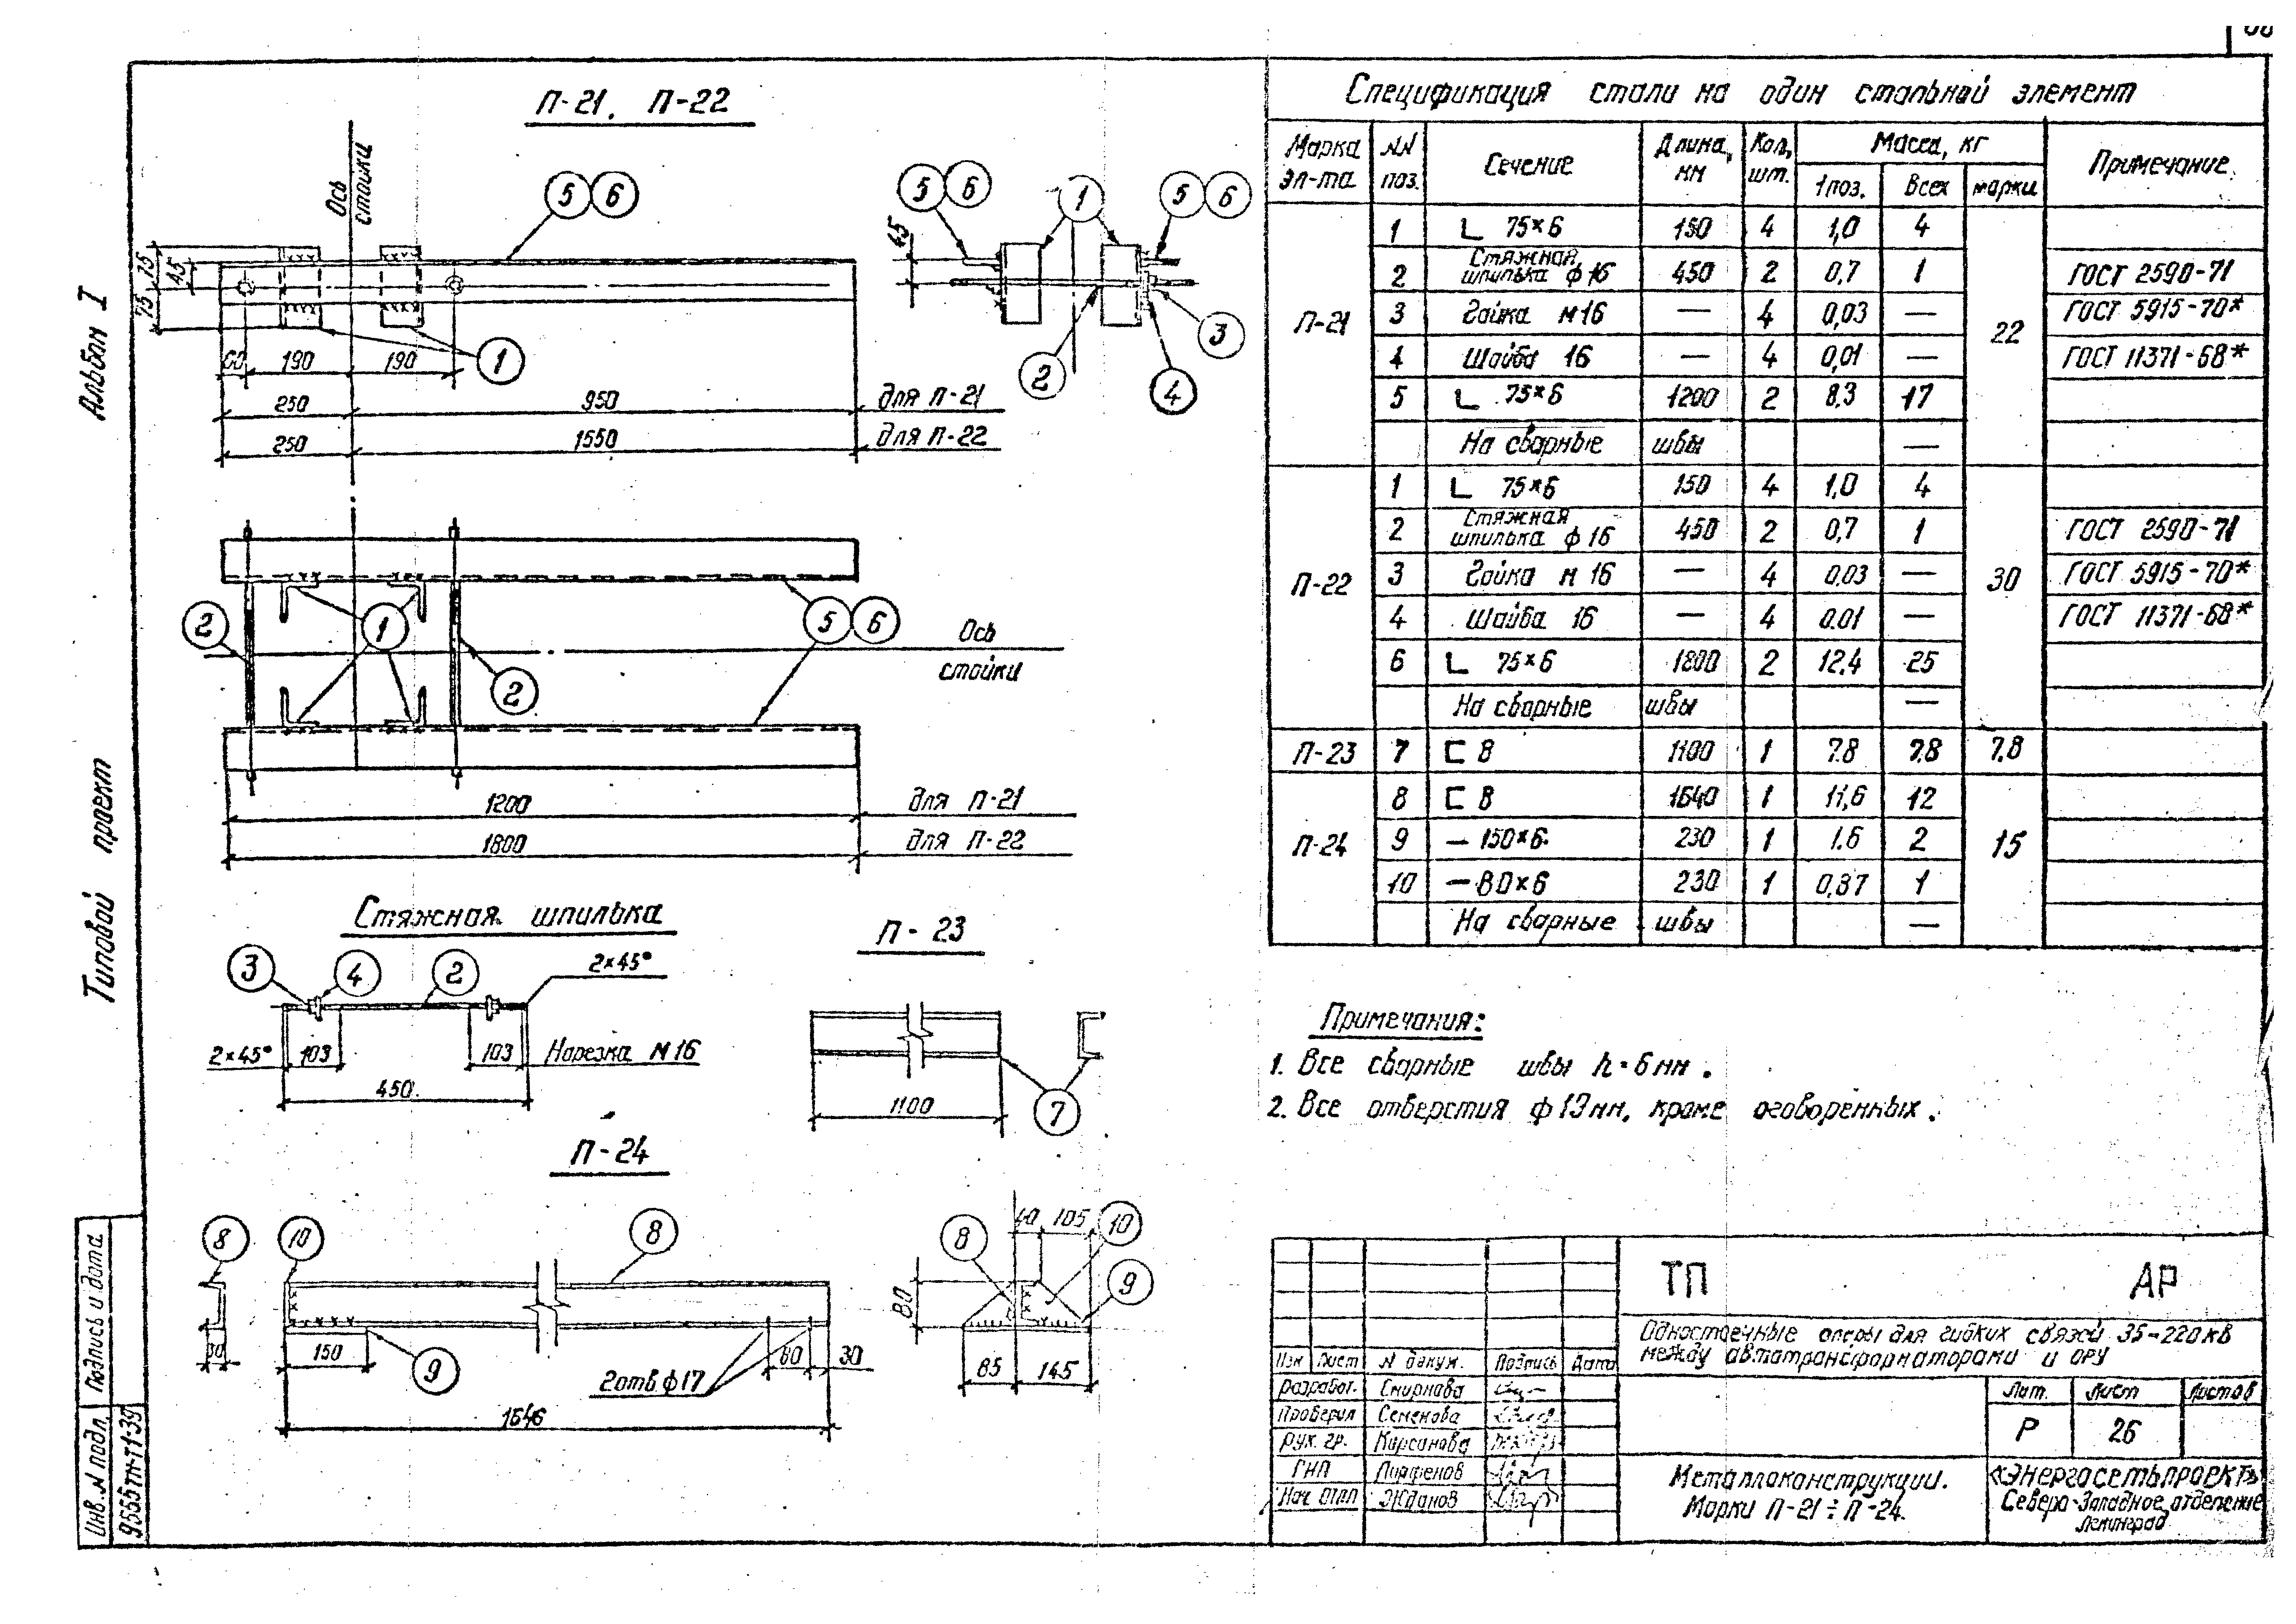 П-21, П-22
Ось стойки
5 6
5 6
1
5 6
45
75
45
75
60
190
190
1
2
3
4
250
950
для П-21
250
1550
для П-22
2
1
5 6
Ось
стойки
2
1200
для П-21
1800
для П-22
Стяжная шпилька
3
4
2
2×45°
2×45°
103
103
Нарезка М16
450
П-23
1100
7
П-24
8
10
8
8
40
105
10
80
9
150
9
2отв.ф17
60
30
85
145
Альбом I
Типовой проект
Инв. N подл.
Подпись и дата
9555тм-т1-39
Спецификация стали на один стальной элемент
Марка эл-та
NN поз.
Сечение
Длина, мм
Кол, шт.
Масса, кг
Примечание
1поз.
Всех
марки
П-21
1 L 75×6 150 4 1,0 4
2 Стяжная шпилька ф16 450 2 0,7 1 ГОСТ 2590-71
3 Гайка М16 — 4 0,03 — ГОСТ 5915-70*
22
4 Шайба 16 — 4 0,01 — ГОСТ 11371-68*
5 L 75×6 1200 2 8,3 17
На сварные швы —
П-22
1 L 75×6 150 4 1,0 4
2 Стяжная шпилька ф16 450 2 0,7 1 ГОСТ 2590-71
3 Гайка М16 — 4 0,03 — ГОСТ 5915-70*
30
4 Шайба 16 — 4 0.01 — ГОСТ 11371-68*
6 L 75×6 1800 2 12,4 25
На сварные швы —
П-23 7 ⊏ 8 1100 1 7.8 7.8 7.8
П-24
8 ⊏ 8 1640 1 11,6 12
9 — 150×6 230 1 1.6 2
15
10 — 80×6 230 1 0,87 1
На сварные швы —
Примечания:
1. Все сварные швы h=6мм.
2. Все отверстия ф19мм, кроме оговоренных.
ТП АР
Одностоечные опоры для гибких связей 35-220кВ
между автотрансформаторами и ОРУ
Изм Лист N докум. Подпись Дата
Разработ. Смирнова
Проверил Семенова
Рук. гр. Кирсанова
ГИП Парфенов
Нач ОТПП Жданов
Лит. Лист Листов
Р 26
Металлоконструкции.
Марки П-21÷П-24.
«ЭНЕРГОСЕТЬПРОЕКТ»
Северо-Западное отделение
Ленинград